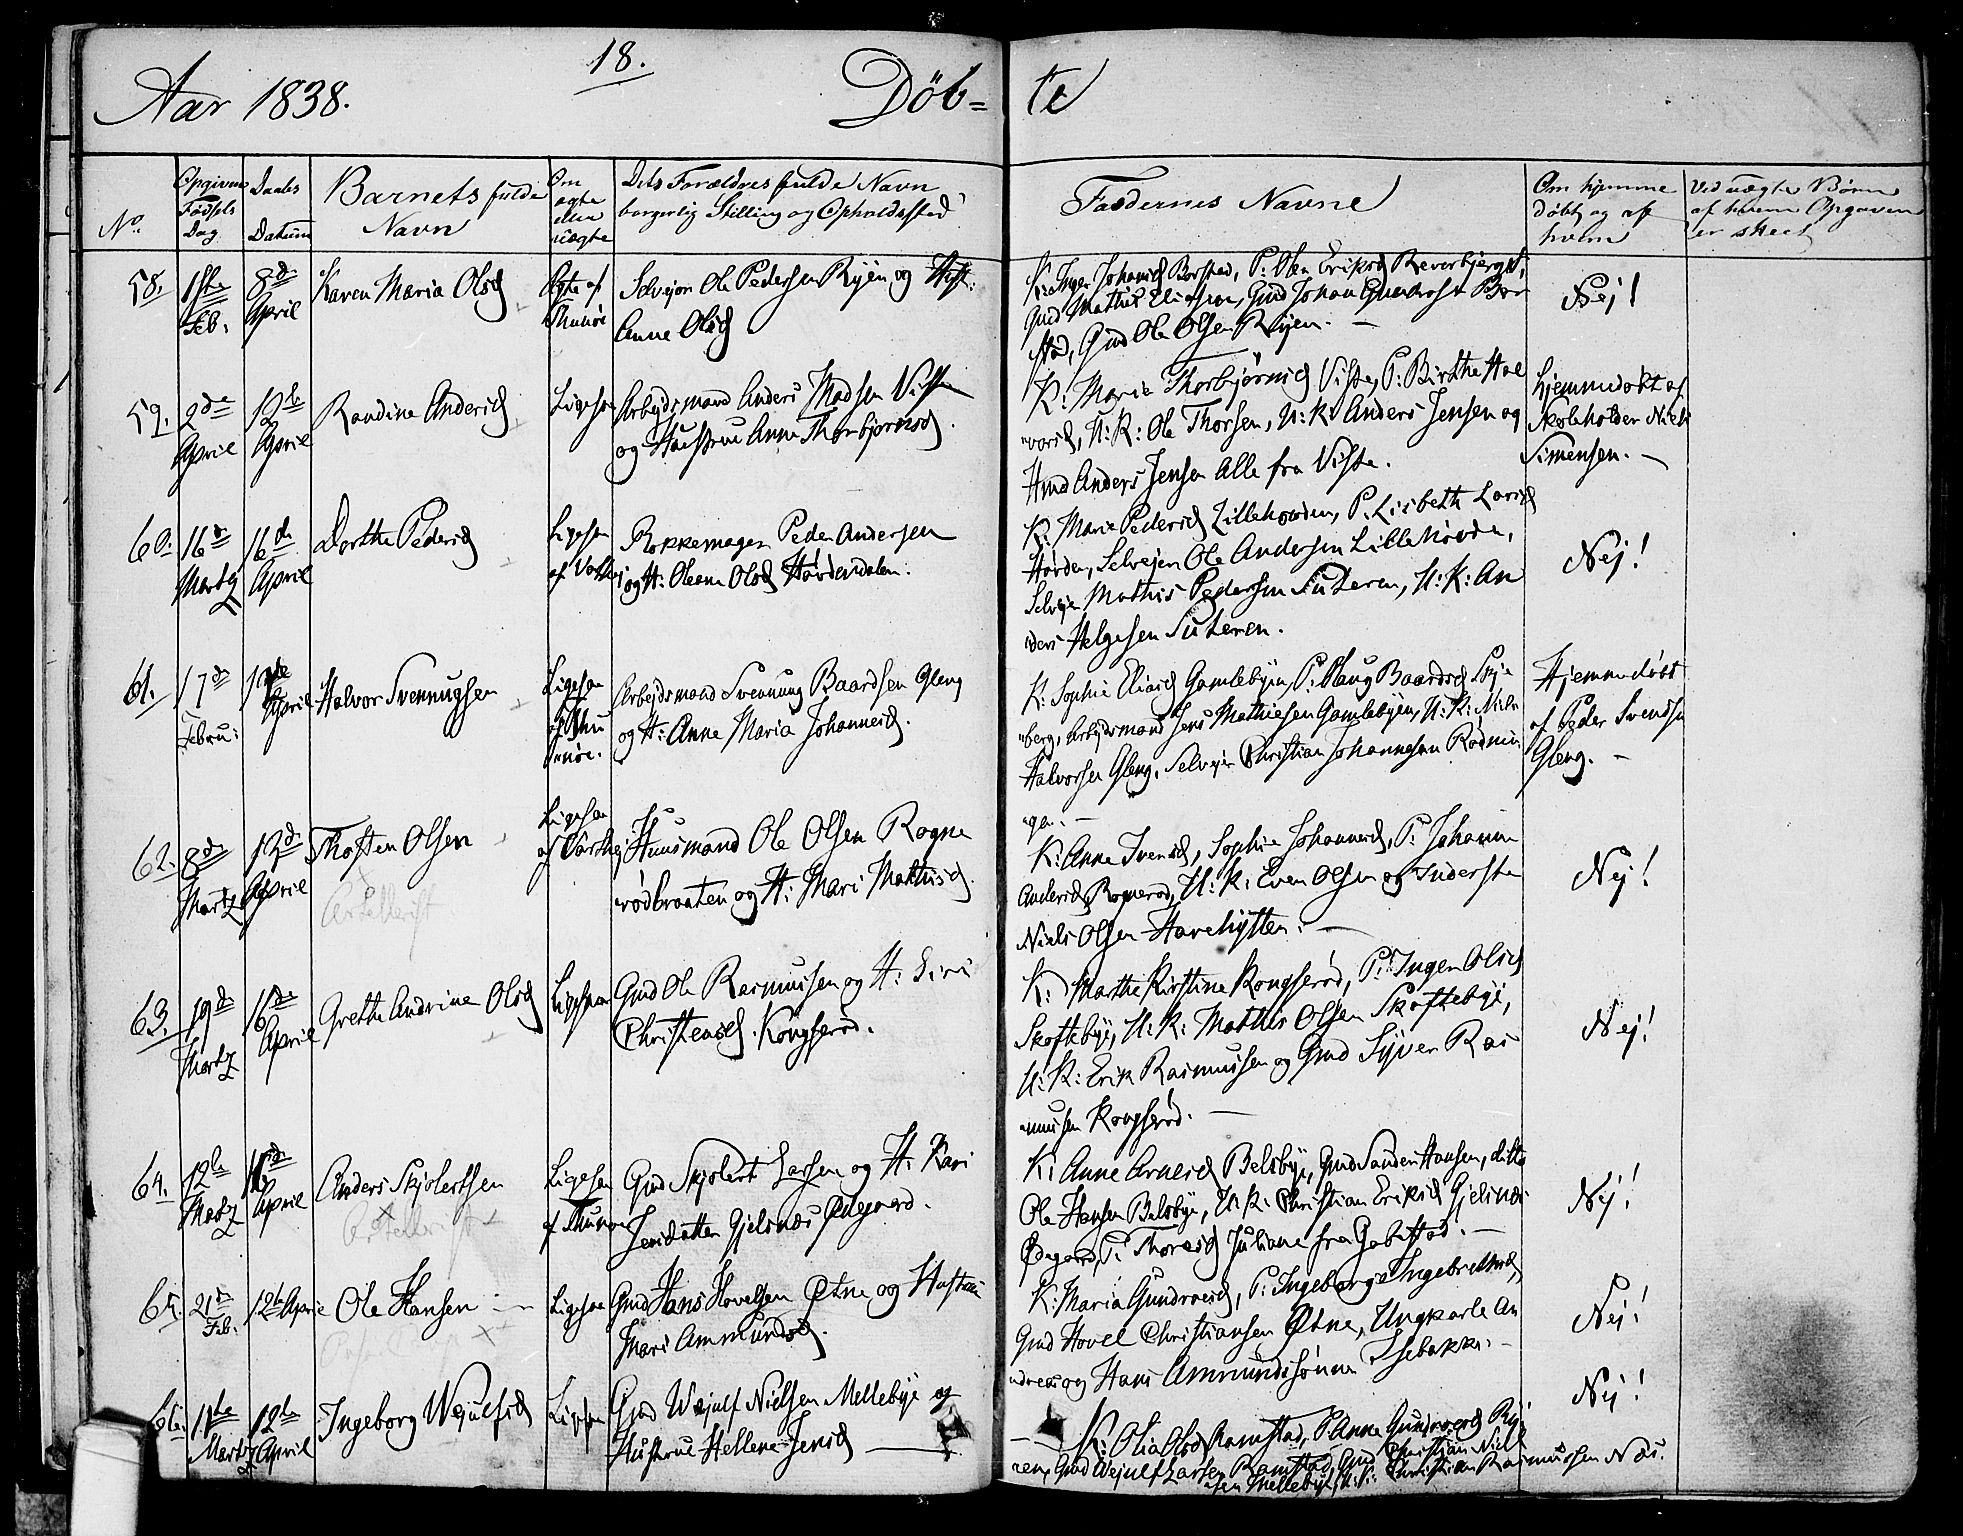 18.
Aar 1838. Döb= te
No.
Opgiven Fødsels Dag
Daabs Datum
Barnets fulde Navn
Om ægte eller uægte
Dets Forældres fulde Navn
borgerlig Stilling og Opholdssted
Faddernes Navne
Om hjemme døbt, og af hvem
Ved uægte Børn af hvem Opgaven er skeet
58. 1ste Feb: 8de April Karen Maria Olsd Ægte af Thunøe
Selvejer Ole Pedersen Ryen og Hust:
Anne Olsd
K: Inger Johansd Borstad, P: Olea Eriksd
Gmd Mathis Eliassen, Gmd Johan Bor
stad, Gmd Ole Olsen Ryen. —
Nej!
59. 2de April 12te April Randine Andersd Ligesaa
Arbejdsmand Anders Madsen Visste
og Hustrue Anne Thorbjørnsd.
K: Marie Thorbjørnsd Visste, P: Birthe Hal
vorsd, U: K: Ole Thorsen, U: K: Anders Jensen og
Hmd Anders Jensen Alle fra Visste.
hjemmedøbt af
Skoleholder Niels
Simensen. —
60. 16de Martz 16de April Dorthe Pedersd Ligesaa af
Rokkemager Peder Andersen
og H: Oleana Olsd Hövdendalen.
K: Marie Pedersd Lillehovden, P: Lisbeth Larsd
Hövden, Selvejer Ole Andersen Lillehövde,
Selvejer Mathis Pedersen Suteren, U: K: An
ders Helgesen Suteren.
Nej!
61. 17de Febru: April Halvor Svennugsen Ligesaa af Thunöe.
Arbejdsmand Svennung Baardsen Gleng
og H: Anne Maria Johannesd.
K: Sophie Eliasd Gamlebyen, P: Olaug Baardsd Skje
berg, Arbejdsmand Jens Mathiesen Gamlebyen, U: K: Niels
Halvorsen Gleng, Selvejer Christian Johannesen Rødnin
gen. —
Hjemmedöbt
af Peder Svendsen
Gleng. —
62. 8de Martz 12te April Thosten Olsen Ligesaa af Varteig
Artellerist
Huusmand Ole Olsen Rogne
rödbraaten og H: Mari Mathisd.
K: Anne Iversd, Sophie Johannesd, P: Johanne
Andersd Rognerød, U: K: Even Olsen og Inderste
Niels Olsen Harehytten: —
Nej!
63. 19de Martz 16de April Grethe Andrine Olsd Ligesaa
Gmd Ole Rasmussen og H: Siri
Christensd. Kongserød.
K: Marthe Kirstine Kongserød, P: Inger Olsd
Skoftebye, U: K: Mathis Olsen Skoftebye,
U: K: Erik Rasmussen og Gmd Syver Ras
mussen Kongserød. —
Nej!
64. 12te Martz 16de April Anders Skjolertsen Ligesaa af Thunøe
Artellerist
Gmd Skjolert Larsen og H: Kari
Jensdatter Gjelsnæs Ødegaard.
K: Anne Arnesd Belsbye, Gmd Sander Hansen, ditto
Ole Hansen Belsbye, U: K: Christian Eriksd Gjelsnæs
Ødegard, P: Thoresd Juliane fra Gabestad. —
Nej!
65. 21de Feb: 12te April Ole Hansen Ligesaa
Gmd Hans Hovelsen Østne og Hustrue
Mari Ammundsd.
K: Maria Gundersd, P: Ingeborge Ingebretsd,
Gmd Hovel Christiansen Østne, Ungkarle An
dreas og Hans Ammundssønner Isebakke. —
Nej!
66. 11te Martz 12te April Ingeborg Wejulfsd Ligesaa
Gmd Wejulf Nielsen Mellebye og
Hustrue Hellene Jensd —
K: Olia Olsd Ramstad, P: Anne Gundersd Ry
ren, Gmd Wejulf Larsen Ramstad, Gmd Christian Niel
sen Mellebye, U: K: Christian Rasmussen Næs.
Nej!